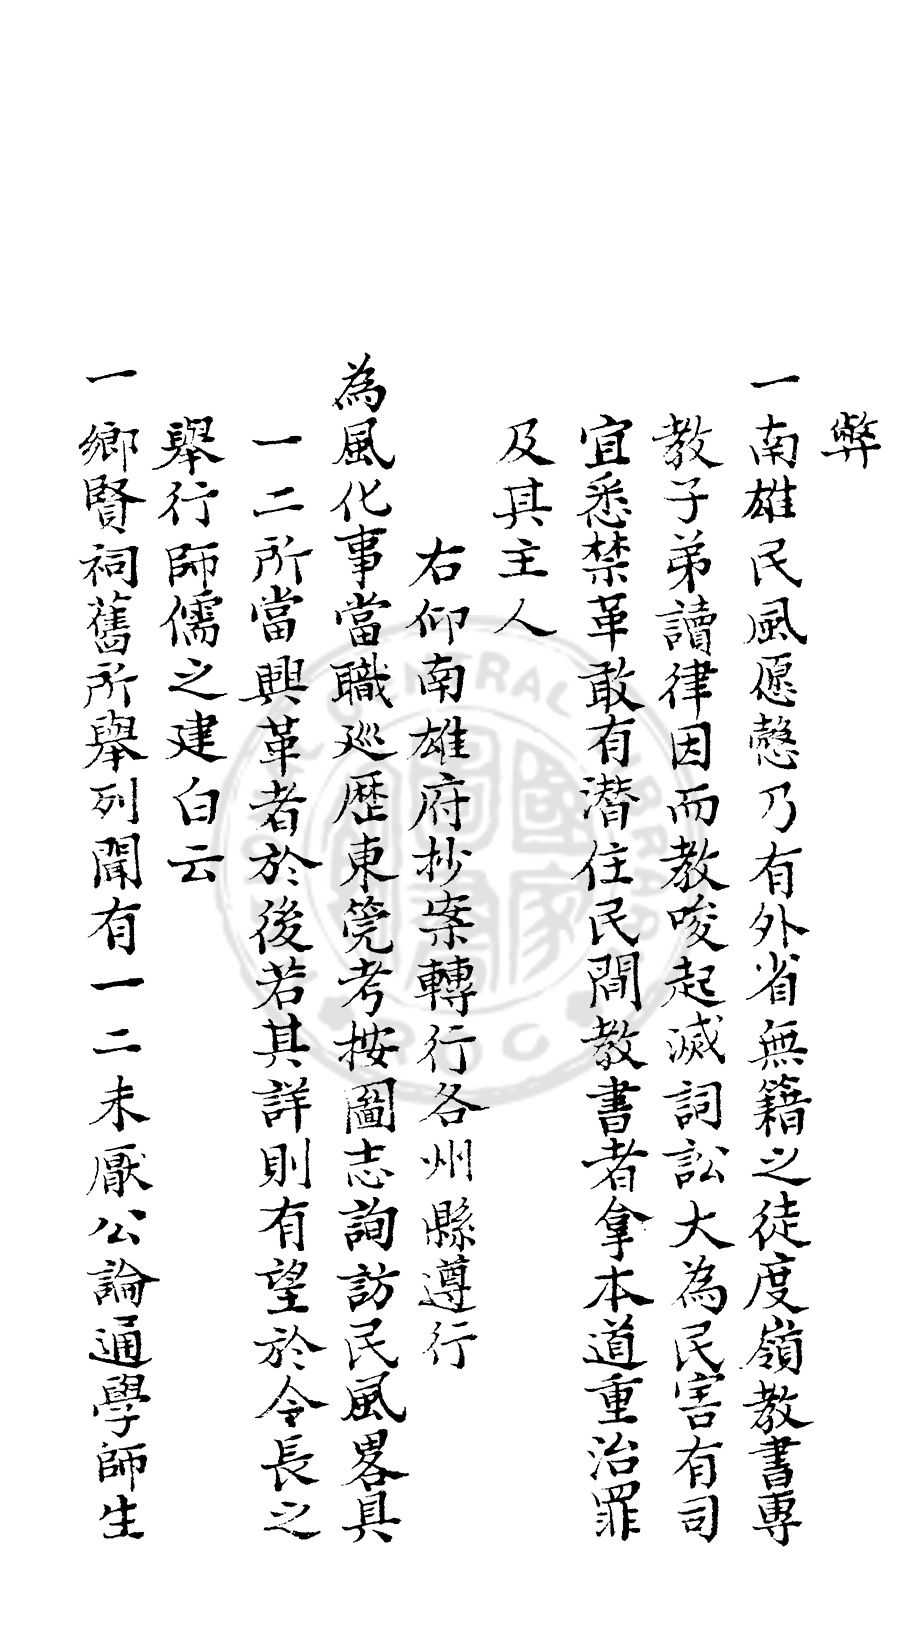 弊
一南雄民風愿慤乃有外省無籍之徒度嶺教書專
教子弟讀律因而教唆起滅詞訟大為民害有司
宜悉禁革敢有潛住民間教書者拿本道重治罪
及其主人
右仰南雄府抄案轉行各州縣遵行
為風化事當職巡歷東筦考按圖志詢訪民風畧具
一二所當興革者於後若其詳則有望於令長之
舉行師儒之建白云
一鄉賢祠舊所舉列聞有一二未厭公論通學師生
CENTRAL LIBRARY
國家圖書館